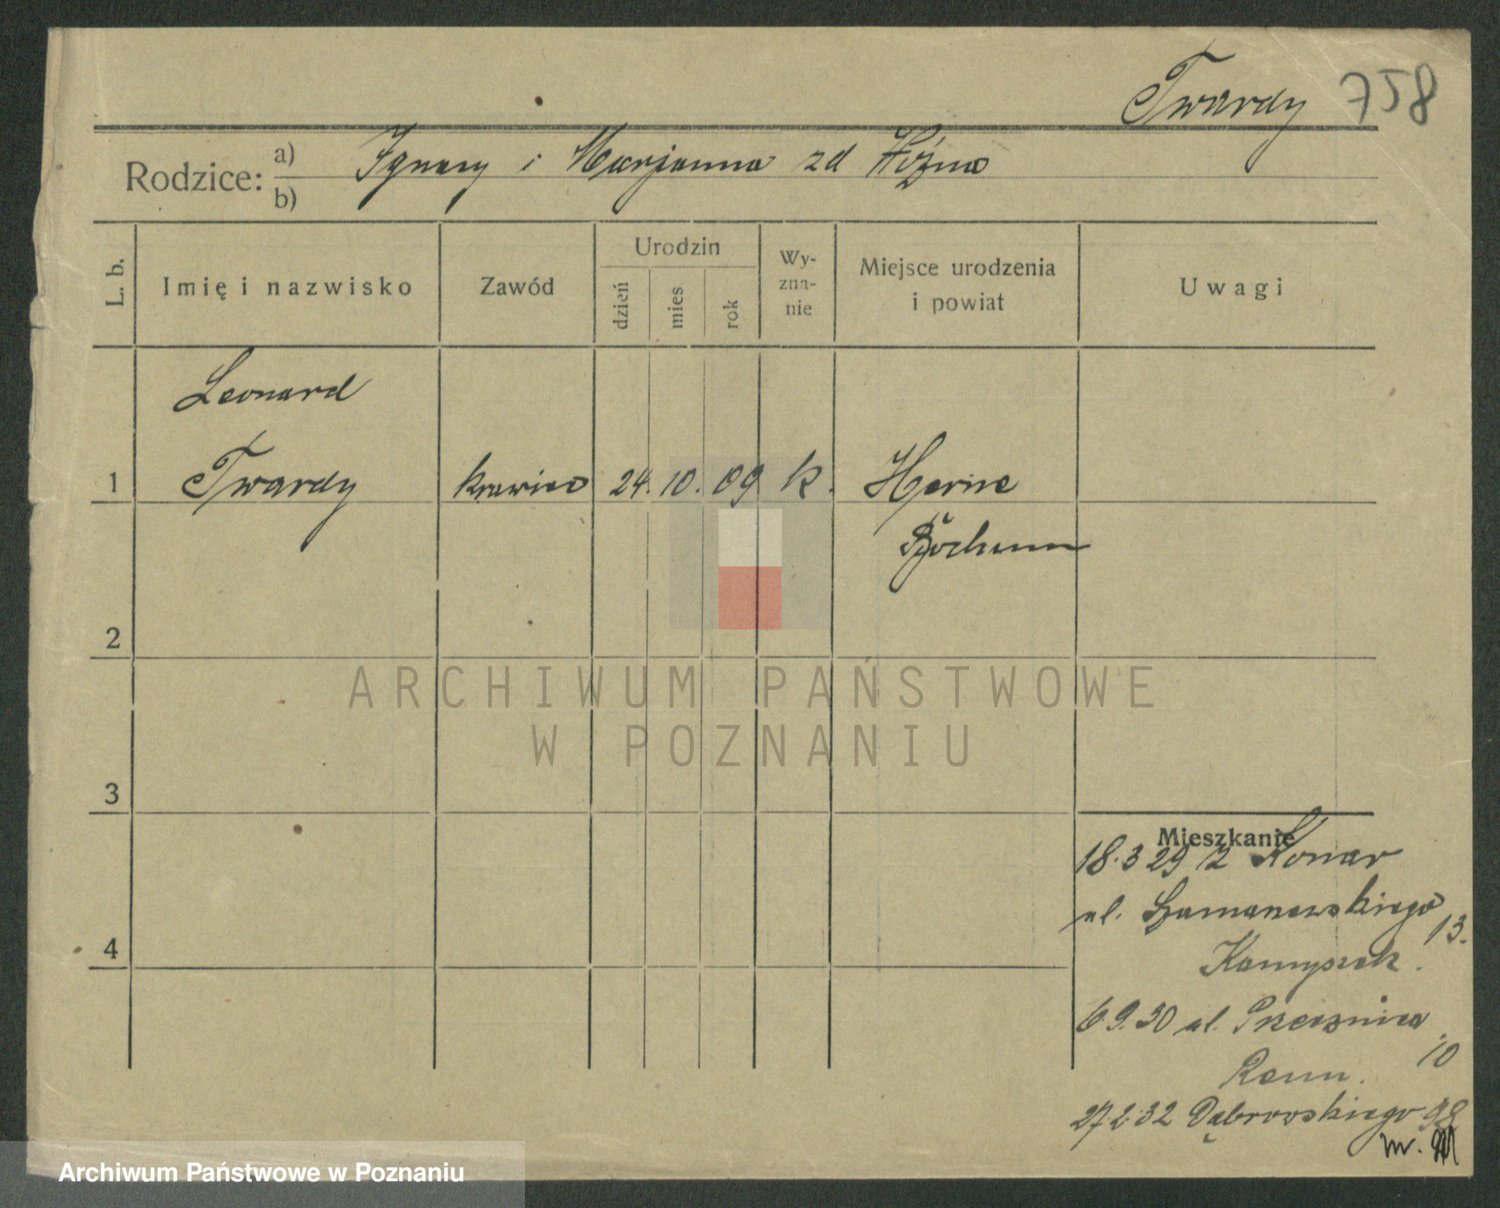 Twardy 758
Rodzice: a) Ignacy i Marjanna zd Hoźna
b)
L. b. Imię i nazwisko Zawód Urodzin dzień mies rok Wy-zna-nie Miejsce urodzenia i powiat Uwagi
Leonard
1 Twardy krawiec 24. 10. 09 k. Herne
Bochum
2
ARCHIWUM PAŃSTWOWE
W POZNANIU
3
Mieszkanie
18.3 29 z Konar
ul. 13.
4
6 9.30 ul. Przecznica 10
27.2.32 Dąbrowskiego 98
Archiwum Państwowe w Poznaniu